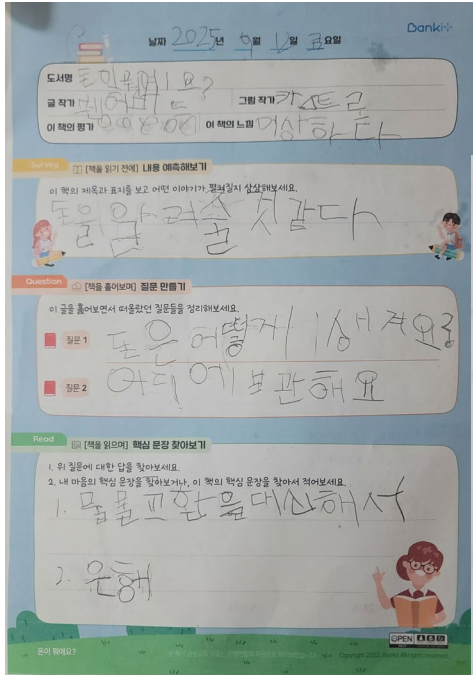 Banki+
날짜 2025년 9월 12일 금요일
도서명 돈이 뭐예요?
글 작가
그림 작가 카스트로
이 책의 평가
이 책의 느낌 이상하다
Survey [책을 읽기 전에] 내용 예측해보기
이 책의 제목과 표지를 보고 어떤 이야기가 펼쳐질지 상상해보세요.
돈을 알려줄 것 같다
Question [책을 훑어보며] 질문 만들기
이 글을 훑어보면서 떠올랐던 질문들을 정리해보세요.
질문 1 돈은 어떻게 생겨요
질문 2 어디에 보관해요
Read [책을 읽으며] 핵심 문장 찾아보기
1. 위 질문에 대한 답을 찾아보세요.
2. 내 마음의 핵심 문장을 찾아보거나, 이 책의 핵심 문장을 찾아서 적어보세요.
1. 물물교환을 대신해서
2. 은행
돈이 뭐예요?
OPEN